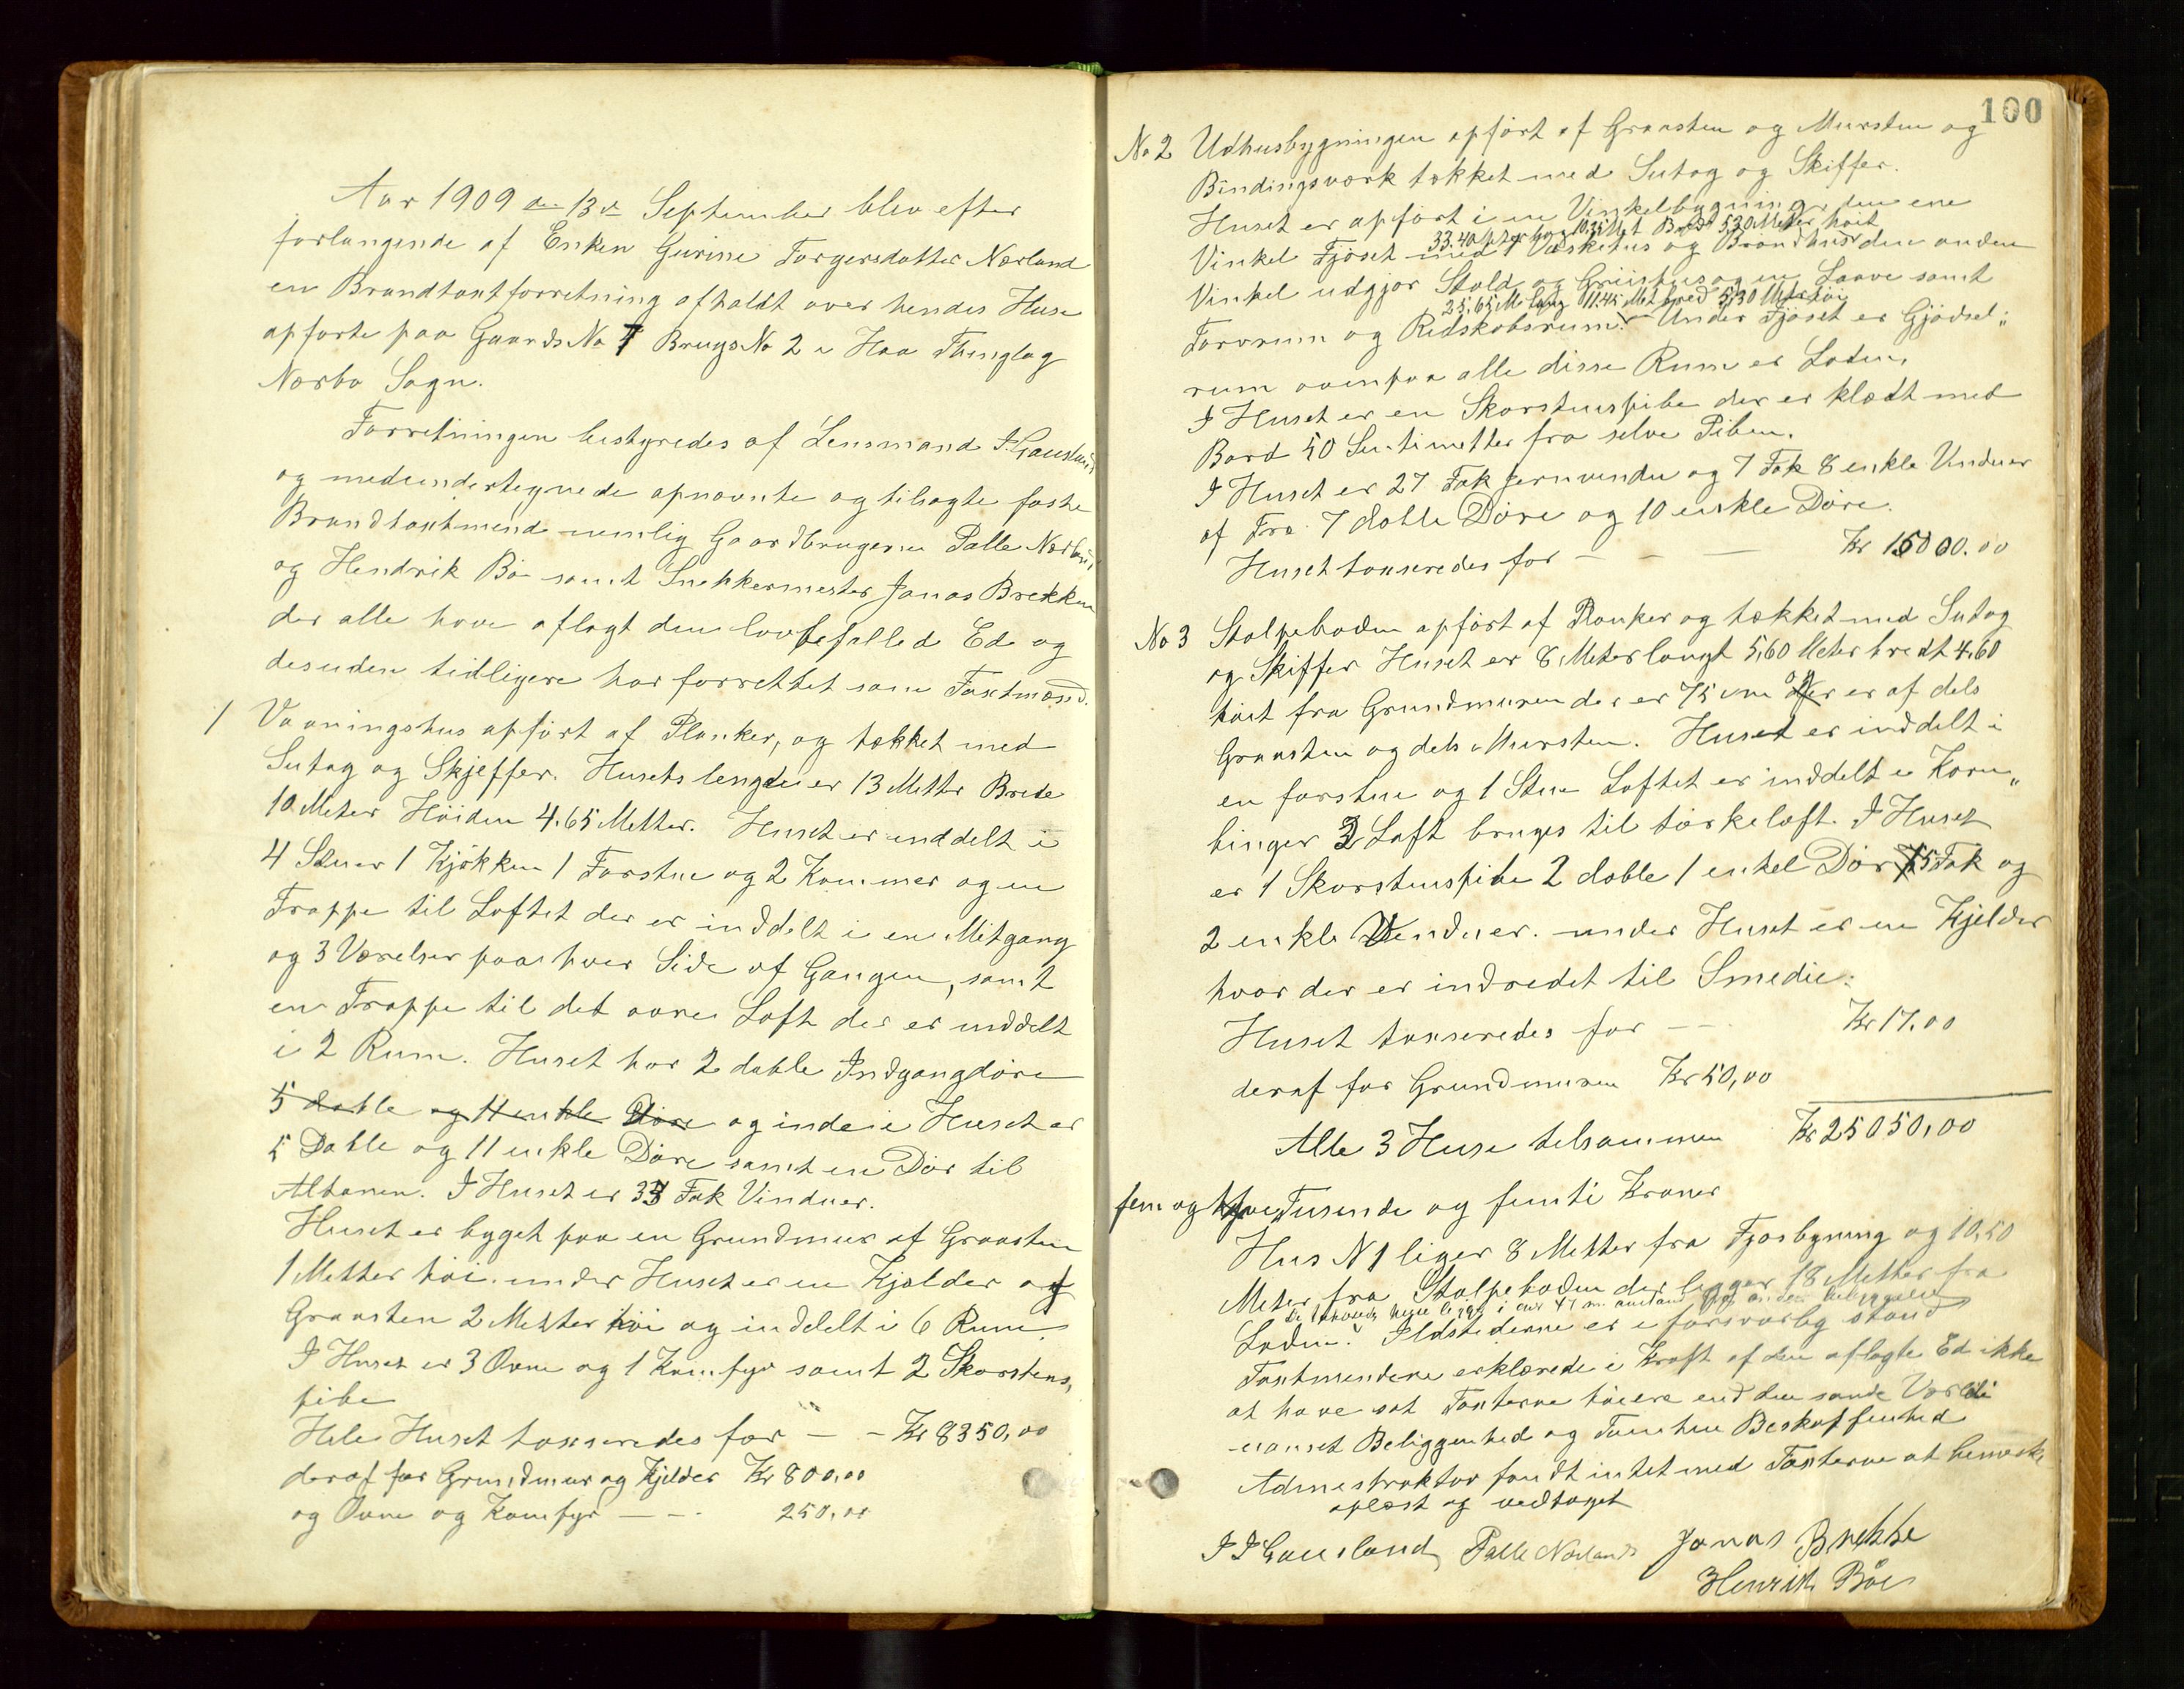 Aar 1909 den 13de September blev efter
forlangende af Enken Gurine Torgersdatter Nærland
en Brandtaxtforretning afholdt over hendes Huse
opførte paa Gaards No 7 Brugs No 2 i Haa Thinglag
Nærbø Sogn.
Forretningen bestyredes af Lensmand I. Gausland
og medundertegnede opnævnte og tilsagte faste
Brandtaxtmend nemlig Gaardbrugerne Palle Nærland
og Hendrik Bø samt Snekkermester Jonas Brekken
der alle have aflagt den lovbefalled Ed og
desuden tidligere har forrettet som Taxtmænd.
1 Vaaningshus opført af Planker, og tækket med
Sutag og Skjeffer. Husets lengde er 13 Metter Brede
10 Meter Høiden 4.65 Metter. Huset er inddelt i
4 Stuer 1 Kjøkken 1 Forstue og 2 Kammer og en
Trappe til Loftet der er inddelt i en Mitgang
og 3 Værelser paa hver Side af Gangen, samt
en Trappe til det øvre Loft der er inddelt
i 2 Rum. Huset har 2 doble Indgangdøre
5 doble og 11 enkle Døre og inde i Huset er
5 Doble og 11 enkle Døre samt en Dør til
Altanen. I Huset er 33 Fak Vinduer.
Huset er bygget paa en Grundmur af Graasten
1 Metter høi. under Huset er en Kjælder af
Graasten 2 Metter høi og inddelt i 6 Rum.
I Huset er 3 Ovne og 1 Komfyr samt 2 Skorstens,
pibe
Hele Huset taxseredes for — - Kr 8350,00
deraf for Grundmur og Kjelder Kr 800,00
og Ovne og Komfyr — - - 250,00
100
No 2 Udhusbygningen opført af Graasten og Mursten og
Bindingsværk tækket med Sutag og Skiffer.
Huset er opført i en Vinkelbygning, den ene
33.40 Meter lang 10.35 Met Bredt 5.30 Meter høit
Vinkel Fjøset med Vaskehus og Brandhus den anden
Vinkel udgjør Stald og Griishus og en Laave samt
25,65 M lang 11.45 Met bred 5,30 Meter høi
Forrum og Redskabsrum. Under Fjøset er Gjødsel„
rum ovenpaa alle disse Rum er Loden.
I Huset er en Skorstenspibe der er klædt med
Bord 50 Sentimetter fra selve Piben.
I Huset er 27 Fak Jernvindu og 7 Fak 8 enkle Vinduer
af Træ. 7 doble Døre og 10 enkle Døre.
Huset taxseredes for - - — Kr 15000.00
No 3 Stolpeboden opført af Planker og tækket med Sutag
og Skiffer Huset er 8 Meter langt 5,60 Meter bredt 4,60
høit fra Grundmuren der er 75 cm og er af dels
Graasten og dels Mursten. Huset er inddelt i
en forstue og 1 Stue Loftet er inddelt i Korn„
binger 2 Loft bruges til tørkeloft. I Huset
er 1 Skorstenspibe 2 doble 1 enkel Dør 5 Fak og
2 enkle Venduer. under Huset er en Kjelder
hvor der er indredet til Smedie.
Huset taxseredes for - - Kr 17.00
deraf for Grundmuren Kr 50,00
Alle 3 Huse tilsammen Kr 25050,00
fem og tyve Tusende og femti Kroner
Hus N 1 liger 8 Metter fra Fjøsbygning og 10,50
Meter fra Stolpeboden der ligger 18 Metter fra
Loden. Ildstederne er i forsvarlig stand
Taxtmendene erklærede i Kraft af den aflagte Ed ikke
at have sat Taxterne høiere end den sande Værdi
uanset Beliggenhed og Tomtens Beskaffenhed
Admestraktor fandt intet med Taxterne at bemerke
oplæst og vedtaget
I I Gausland, Palle Nærland Jonas Brekke
Henrik Bøe